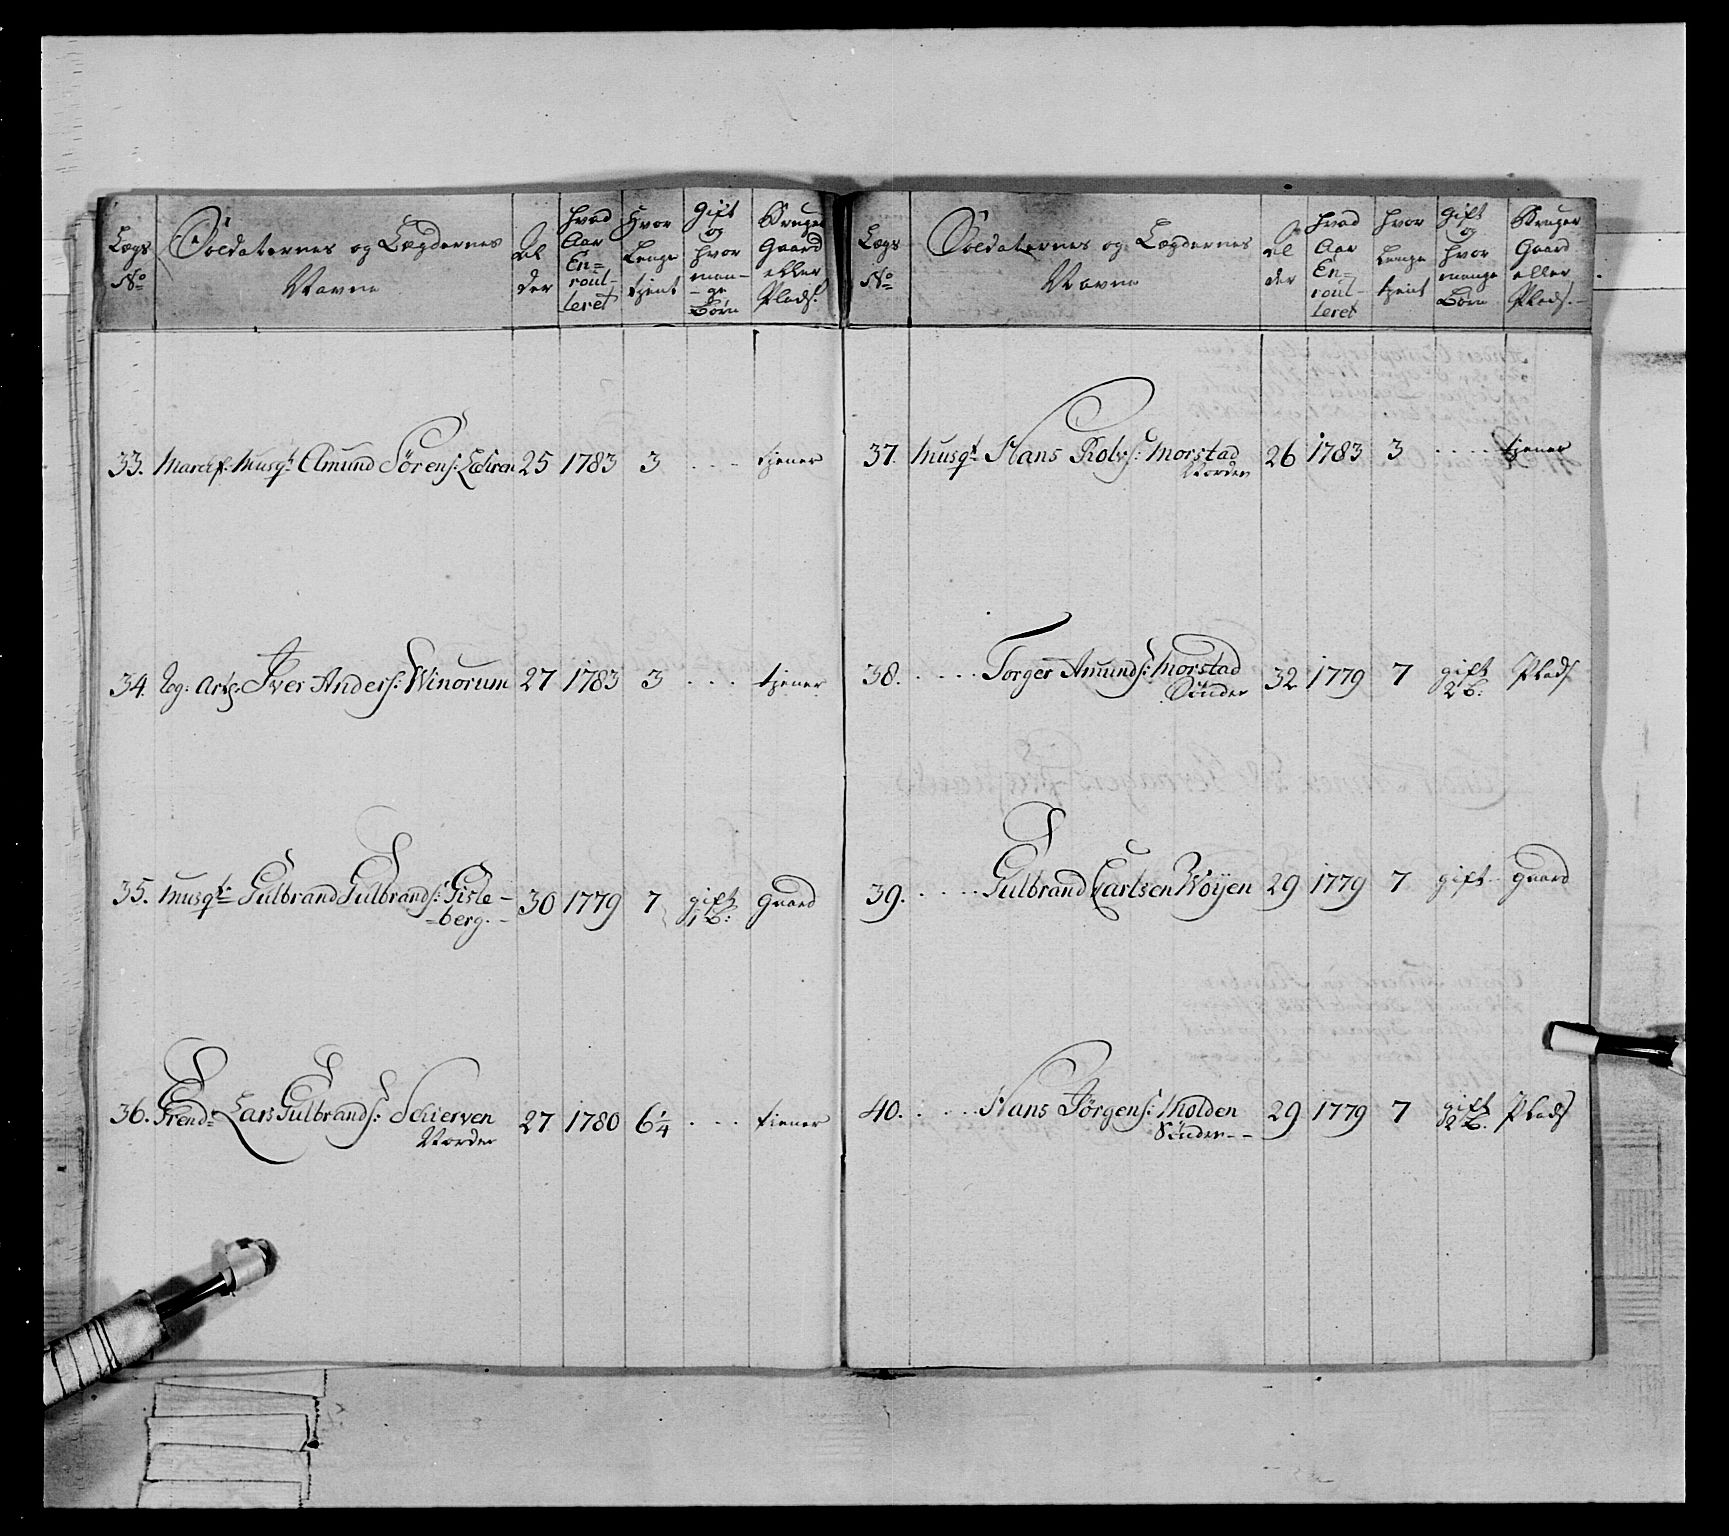 Lægs No
Soldaternes og Lægdernes Navne
Al der
hvad Aar En= roul- leret
Hvor Lenge tjent
Gift og hvor man- ge Børn
Bruger Gaard eller Plads.
33. Musqt Amund Sörens: 25 1783 3 . . . tjener
34. Reg: Arts Iver Anders: Winorum 27 1783 3 . . . tjener
35. Musqt: Gulbrand Gulbrands: Gisle-
-berg. - 30 1779 7 gift 1 B: Gaard
36. Frend: Lars Gulbrands: Schierven
Norder 27 1780 6 1/4 . . . tiener
Lægs No
Soldaternes og Lægdernes Navne
Al der
hvad Aar En= roul- leret
hvor Lenge tjent
gift og hvor mange Børn
Bruger Gaard eller Plads. -
37. Musqt Hans Rolvs: Morstad
Norden 26 1783 3 . . . . tjener
38. . . . . Torger Amunds: Morstad
Sönder 32 1779 7 gift 2 B: Plads
39. . . . . Gulbrand Carlsen Wöyen 29 1779 7 gift . . gaard
40. . . . . Hans Jörgens: Molden
Sönder - - 29 1779 7 gift 2 B. Plads